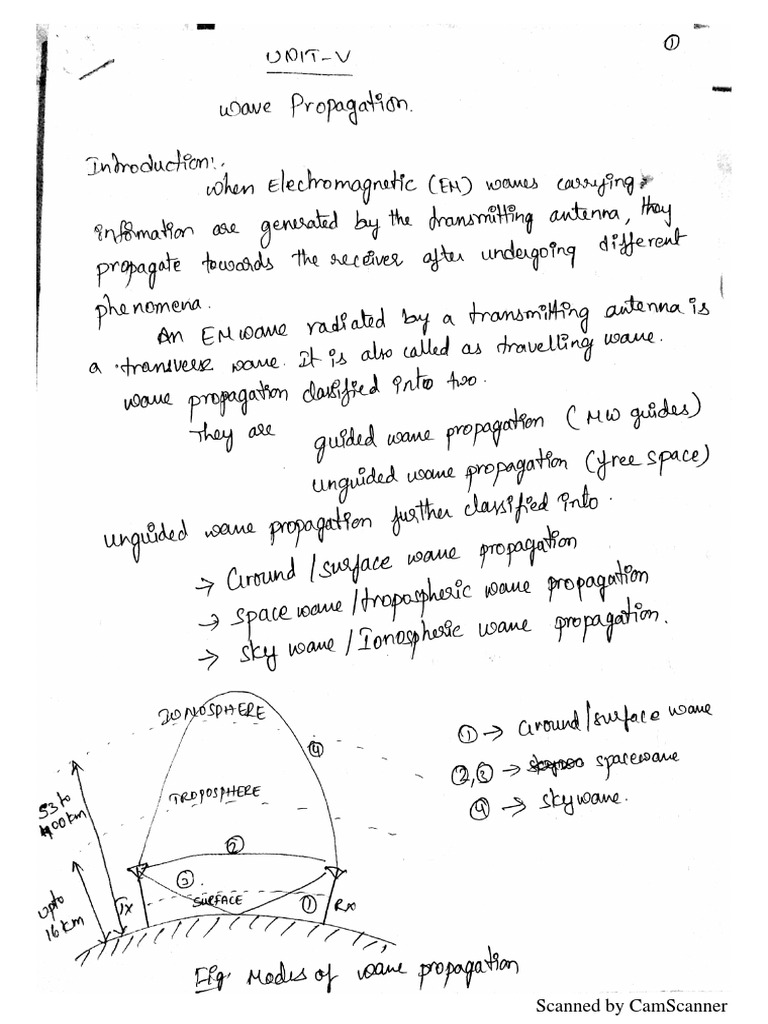 ①
UNIT-V
Wave Propagation.
Introduction:.
When Electromagnetic (EM) waves carrying
information are generated by the transmitting antenna, they
propagate towards the receiver after undergoing different
phenomena.
An EM wave radiated by a transmitting antenna is
a transverse wave. It is also called as travelling wave.
wave propagation classified into two.
They are guided wave propagation (MW guides)
unguided wave propagation (free space)
unguided wave propagation further classified into.
→ Ground/surface wave propagation
→ Space wave/tropospheric wave propagation
→ Sky wave/Ionospheric wave propagation.
IONOSPHERE
④
TROPOSPHERE
②
③
SURFACE
①
Tx
Rx
53 to
400 km
upto
16 km
① → Ground/surface wave
②,③ → spacewave
④ → skywave.
Fig: Modes of wave propagation
Scanned by CamScanner